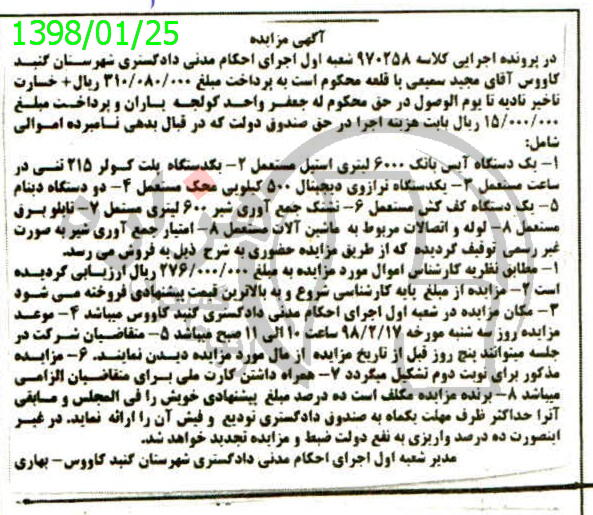 1398/01/25
آگهی مزایده
در پرونده اجرایی کلاسه ۹۷۰۲۵۸ شعبه اول اجرای احکام مدنی دادگستری شهرستان گنبد
کاووس آقای مجید سمیعی پا قلعه محکوم است به پرداخت مبلغ ۳۱۰/۰۸۰/۰۰۰ ریال+ خسارت
تاخیر تادیه تا یوم الوصول در حق محکوم له جعفر واحد کولجه یاران و پرداخت مبلغ
۱۵/۰۰۰/۰۰۰ ریال بابت هزینه اجرا در حق صندوق دولت که در قبال بدهی نامبرده اموالی
شامل:
۱- یک دستگاه آیس بانک ۶۰۰۰ لیتری استیل مستعمل ۲- یکدستگاه پلت کولر ۲۱۵ تنی در
ساعت مستعمل ۳- یکدستگاه ترازوی دیجیتال ۵۰۰ کیلویی محک مستعمل ۴- دو دستگاه دینام
۵- یک دستگاه کف کش مستعمل ۶- تشتک جمع آوری شیر ۶۰۰ لیتری مستمل ۷- تابلو برق
مستعمل ۸- لوله و اتصالات مربوط به ماشین آلات مستعمل ۸- امتیاز جمع آوری شیر به صورت
غیر رسمی توقیف گردیده که از طریق مزایده حضوری به شرح ذیل به فروش می رسد.
۱- مطابق نظریه کارشناس اموال مورد مزایده به مبلغ ۲۷۶/۰۰۰/۰۰۰ ریال ارزیابی گردیده
است ۲- مزایده از مبلغ پایه کارشناسی شروع و به بالاترین قیمت پیشنهادی فروخته می شود
۳- مکان مزایده در شعبه اول اجرای احکام مدنی دادگستری گنبد کاووس میباشد ۴- موعد
مزایده روز سه شنبه مورخه ۹۸/۲/۱۷ ساعت ۱۰ الی ۱۱ صبح میباشد ۵- متقاضیان شرکت در
جلسه میتوانند پنج روز قبل از تاریخ مزایده از مال مورد مزایده دیدن نمایند. ۶- مزایده
مذکور برای نوبت دوم تشکیل میگردد ۷- همراه داشتن کارت ملی برای متقاضیان الزامی
میباشد ۸- برنده مزایده مکلف است ده درصد مبلغ پیشنهادی خویش را فی المجلس و مابقی
آنرا حداکثر ظرف مهلت یکماه به صندوق دادگستری تودیع و فیش آن را ارائه نماید. در غیر
اینصورت ده درصد واریزی به نفع دولت ضبط و مزایده تجدید خواهد شد.
مدیر شعبه اول اجرای احکام مدنی دادگستری شهرستان گنبد کاووس- بهاری